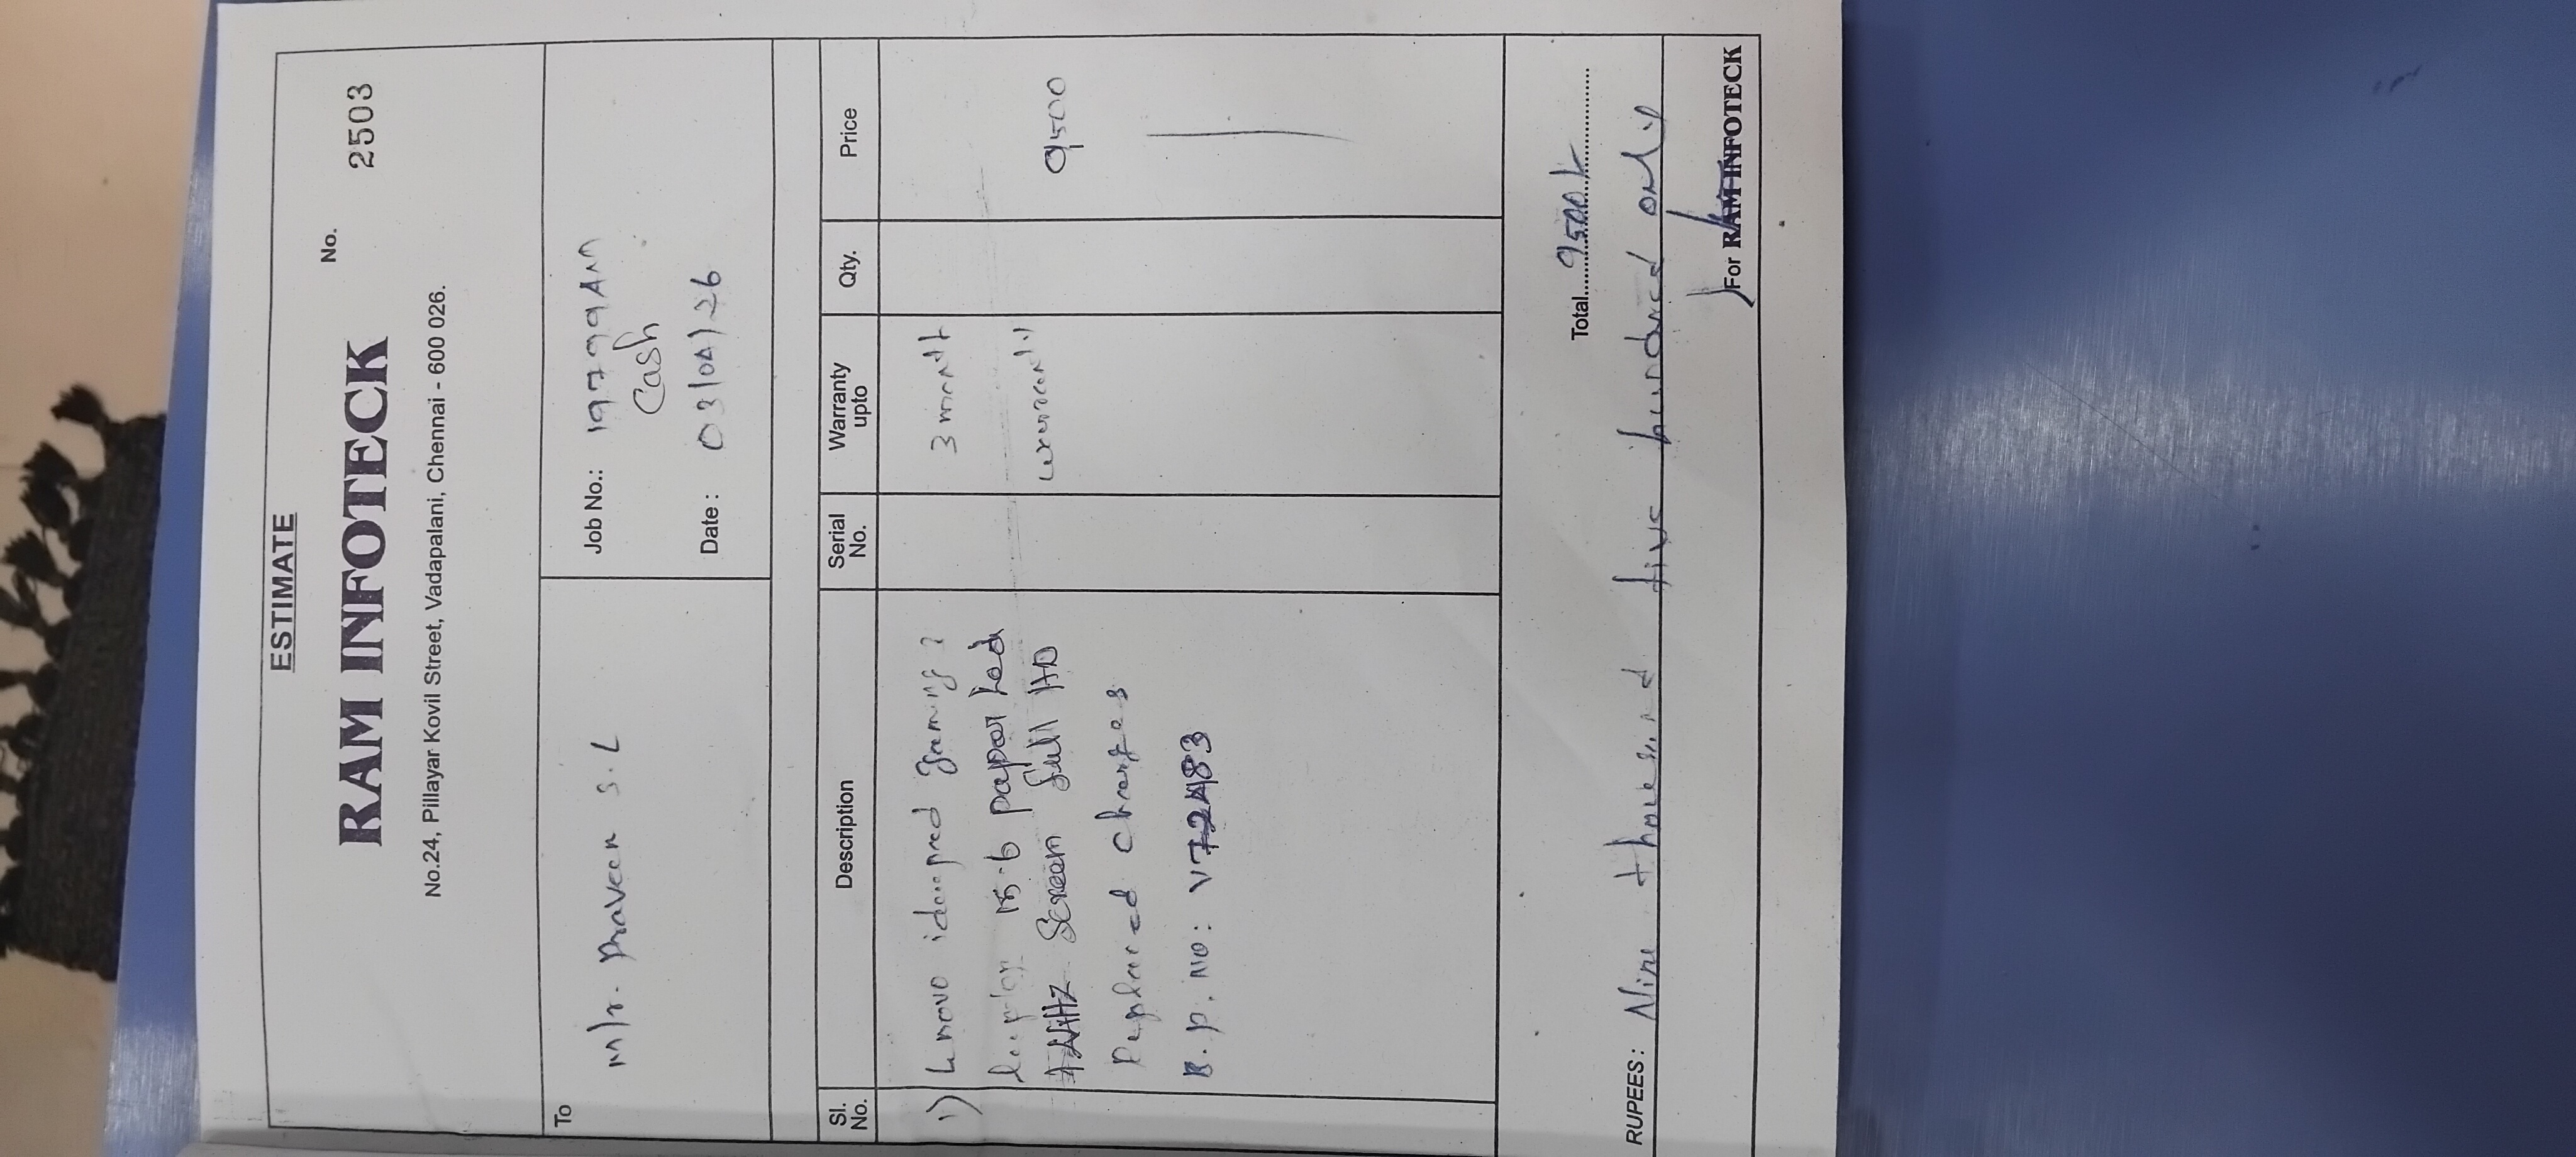 ESTIMATE
RAM INFOTECK
No. 2503
No.24, Pillayar Kovil Street, Vadapalani, Chennai - 600 026.
To
Mr. Praveen S.L
Job No.:
Cash
Date : 03/04/26
Sl. No. Description Serial No. Warranty upto Qty. Price
1) Lenovo ideapad gaming 3 month
15.6 paper Led
Screen full HD 9,500
Replaced Charges
B.P. NO: V724183
Total 9500/-
RUPEES: Nine thousand five hundred only
For RAM INFOTECK